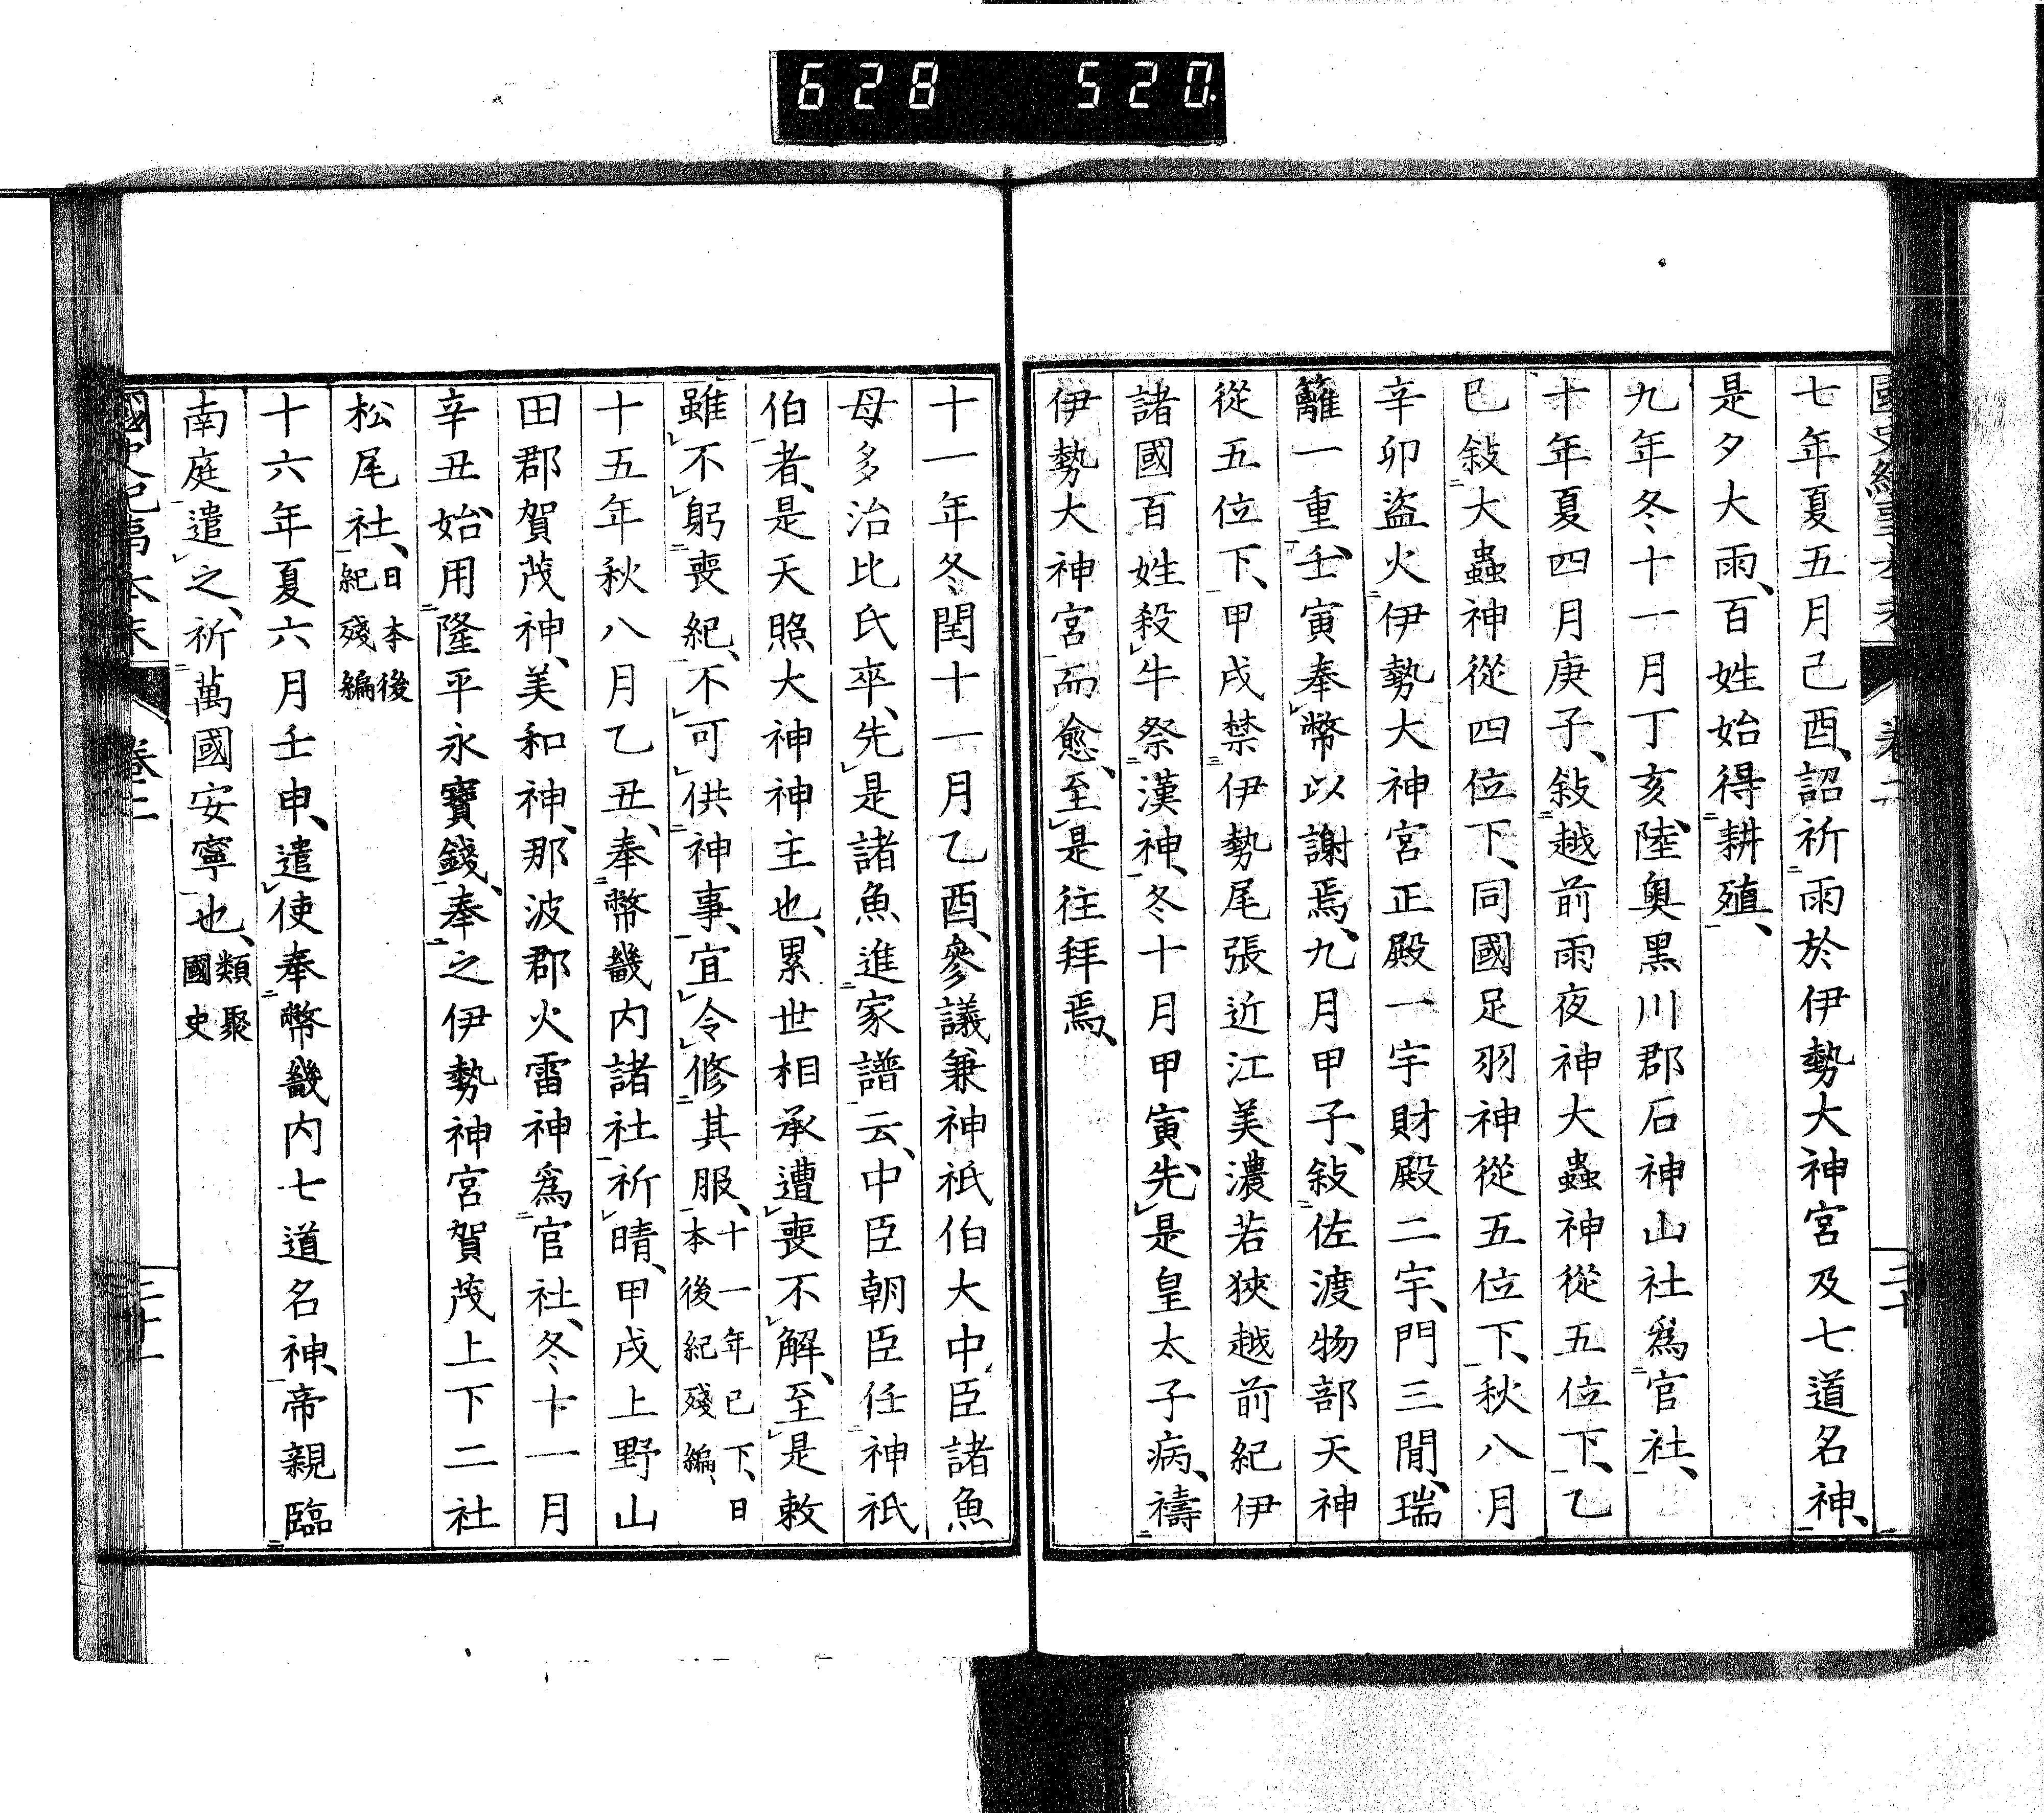 628 520.
七年夏五月己酉、詔祈雨於伊勢大神宮及七道名神、
是夕大雨、百姓始得耕殖、
九年冬十一月丁亥、陸奥黑川郡石神山社爲官社、
十年夏四月庚子、敍越前雨夜神大蟲神從五位下、乙
巳敍大蟲神從四位下、同國足羽神從五位下、秋八月
辛卯盜火伊勢大神宮正殿一宇財殿二宇、門三閒、瑞
籬一重、壬寅奉幣以謝焉、九月甲子、敍佐渡物部天神
從五位下、甲戌禁伊勢尾張近江美濃若狹越前紀伊
諸國百姓殺牛祭漢神、冬十月甲寅、先是皇太子病、禱
伊勢大神宮而愈、至是往拜焉、
十一年冬閏十一月乙酉、參議兼神祇伯大中臣諸魚
母多治比氏卒、先是諸魚進家譜云、中臣朝臣任神祇
伯者、是天照大神神主也、累世相承遭喪不解、至是敕
雖不躬喪紀、不可供神事、宜令修其服、十一年已下、日本後紀殘編、
十五年秋八月乙丑、奉幣畿内諸社祈晴、甲戌上野山
田郡賀茂神、美和神、那波郡火雷神爲官社、冬十一月
辛丑始用隆平永寶錢、奉之伊勢神宮賀茂上下二社
松尾社、日本後紀殘編
十六年夏六月壬申、遣使奉幣畿内七道名神、帝親臨
南庭遣之、祈萬國安寧也、類聚國史
國史紀事本末 卷二 二十一